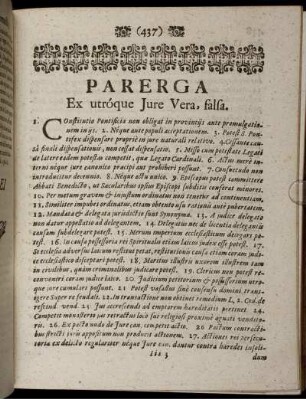 (437)
PARERGA
Ex utróque Jure Vera, falsa.
1. Constitutio Pontificia non obligat in provinciis ante promulgatio-
nem in ijs. 2. Neque ante populi acceptationem. 3. Potest S. Pon-
tifex dispensare propriè in jure naturali relativo. 4. Cessante cau-
sâ finali dispensationis, non cessat dispensatio. 5. Missi cum potestate Legati
de latere eadem potestas competit, quæ Legato Cardinali. 6. Actus merè exter-
ni neque jure canonico præcipi aut prohiberi possunt. 7. Consuetudo non
introducitur decennio. 8. Neque actu unico. 9. Episcopus potest committere
Abbati Benedicto, ut Sæcularibus ipsius Episcopi subditis conferat minores.
10. Per metum gravem & injustum ordinatus non tenetur ad continentiam.
11. Similiter impubes ordinatus, etiam obtento usu rationis ante pubertatem.
12. Mandata & delegata jurisdictio sunt Synonyma. 13. A judice delegato
non datur appellatio ad delegantem. 14. Delegatus nec de licentia delegantis
causam subdelegare potest. 15. Merum imperium ecclesiasticum delegari po-
test. 16. In causa possessoria rei Spiritualis etiam laicus judex esse potest. 17.
Se ecclesia adversus laicum restitui petat, restitutionis causa etiam coram judice
ecclesiastico disceptari potest. 18. Maritus illustris uxorem illustrem tam
in civilibus, quàm criminalibus judicare potest. 19. Clericus non potest re-
convenire coram judice laico. 20. Judicium petitorium & possessorium utro-
que jure cumulari possunt. 21. Potest vasallus sine consensu domini, trans-
igere super re feudali. 22. In transactione non obtinet remedium L. 2. Cod. de
rescind. vend. 23. Jus accrescendi ab emptorem hæreditatis pertinet. 24.
Competit monasterio jus retractus loco sui religiosi proximè agnati vendito-
ris. 25. Ex pacto nudo de Jure can. competit actio. 26. Pactum contracti-
bus stricti juris appositum non producit actionem. 27. Actiones rei persecu-
toriæ ex delicto regulariter neque Jure can. dantur contra hæredes insoli-
iii 3
dum